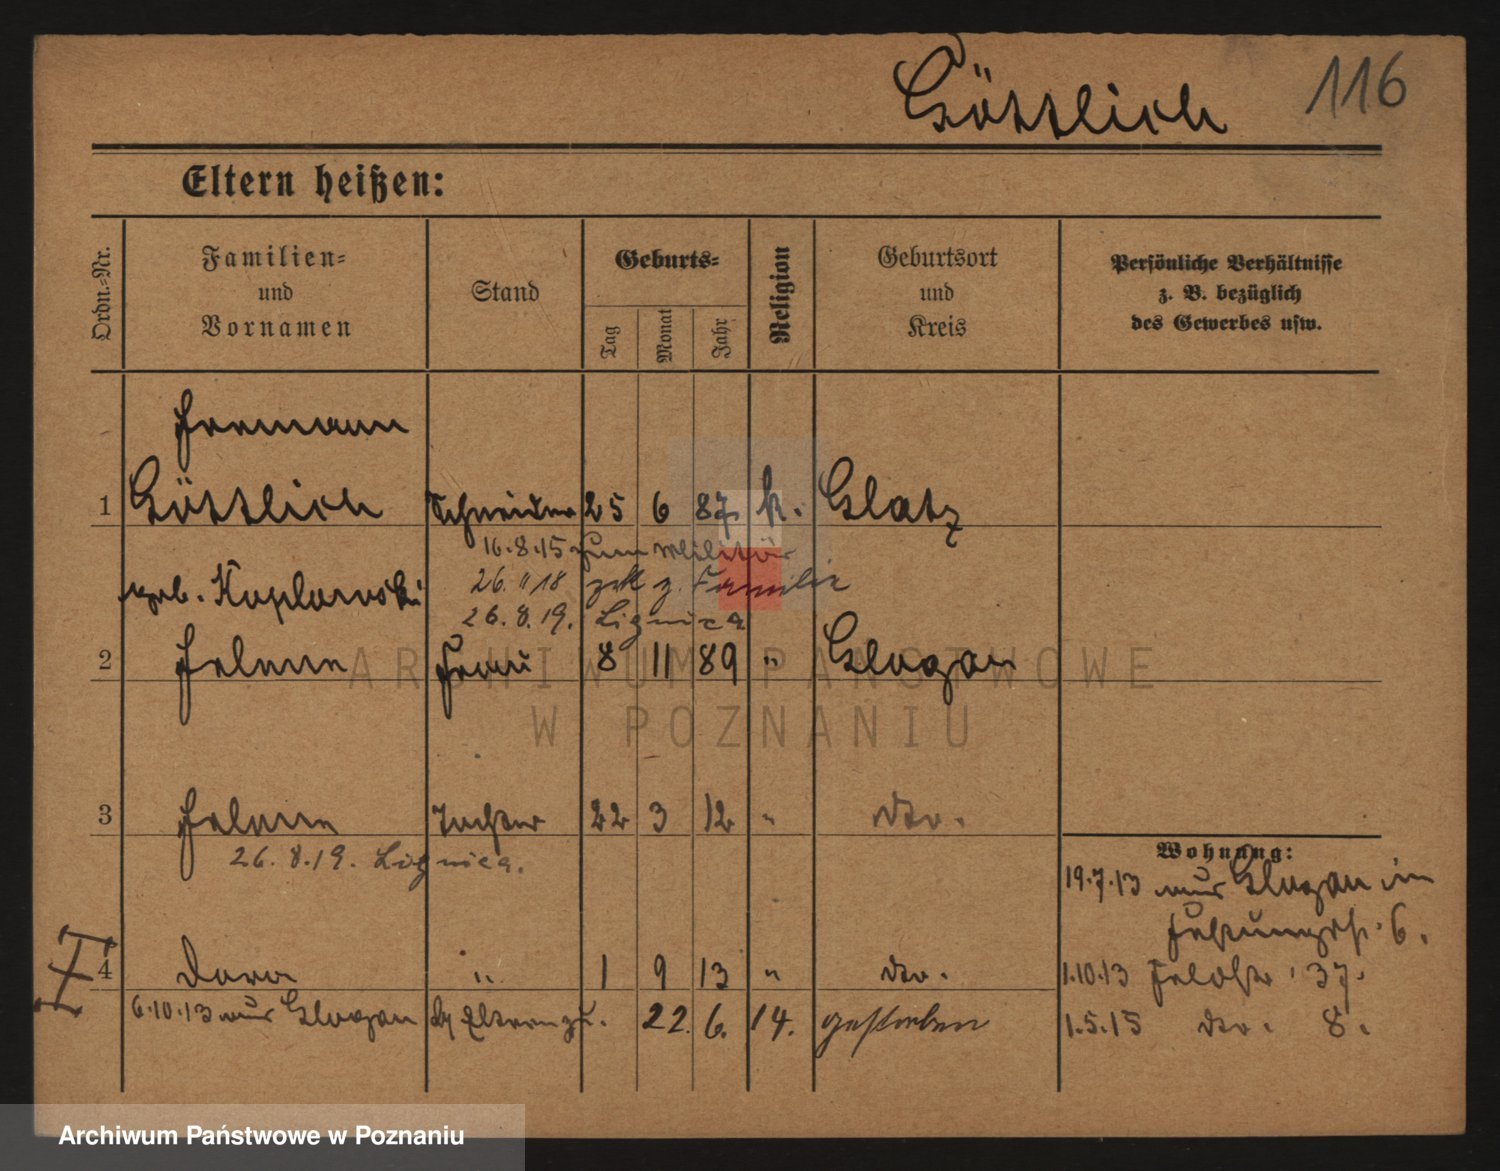 Göttlich 116
Eltern heißen:
Ordn.-Nr.
Familien-
und
Vornamen
Stand
Geburts-
Tag
Monat
Jahr
Religion
Geburtsort
und
Kreis
Persönliche Verhältnisse
z. B. bezüglich
des Gewerbes usw.
Hermann
1 Göttlich Schneider 25 6 87 k. Glatz
16.8.15 zum Militär
geb. Koplowski 26. " 18 zck z. Familie
26.8.19. Lignica
2 Helene Frau 8 11 89 " Glogau
3 Helene Tochter 22 3 12 " dto.
26.8.19. Lignica.
Wohnung:
19.7.13 aus Glogau in
6.
4 Dora " 1 9 13 " dto. 1.10.13 37.
6.10.13 aus Glogau Eltern zu. 22. 6. 14. gestorben 1.5.15 dto. 8.
ARCHIWUM PAŃSTWOWE
W POZNANIU
Archiwum Państwowe w Poznaniu